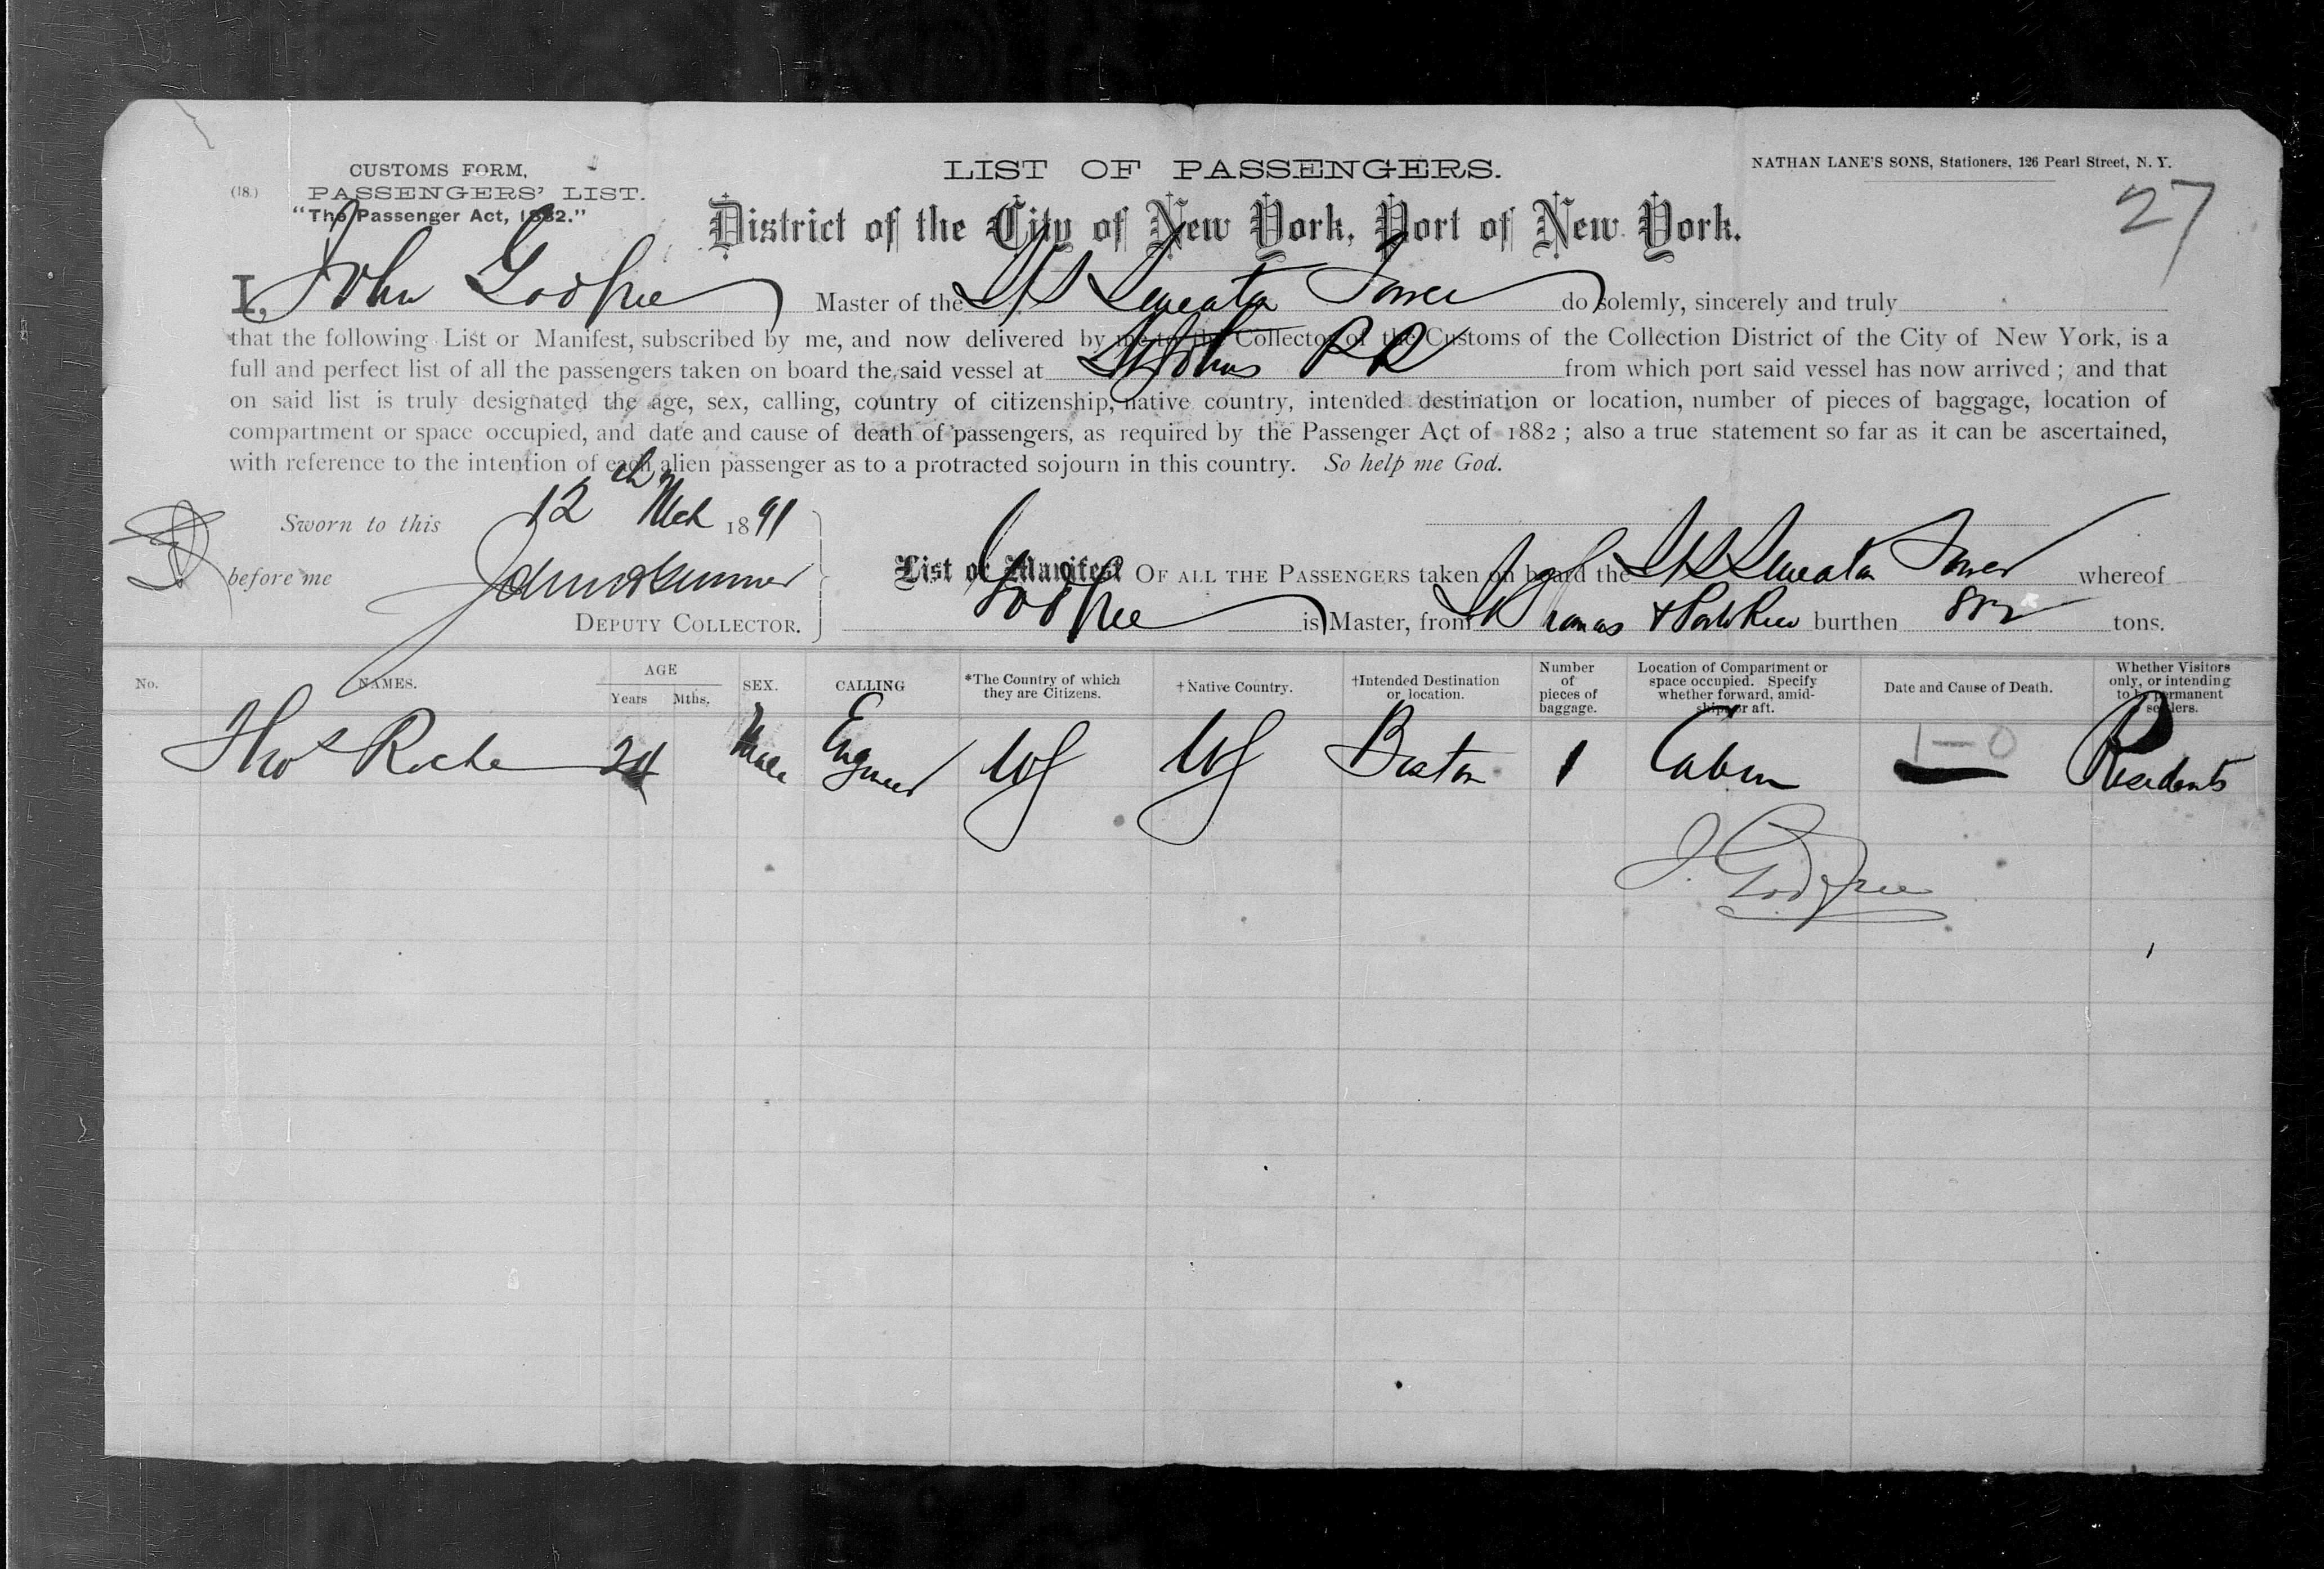 CUSTOMS FORM,
(18.) PASSENGERS' LIST.
"The Passenger Act, 1882."
LIST OF PASSENGERS.
NATHAN LANE'S SONS, Stationers, 126 Pearl Street, N. Y.
27
District of the City of New York, Port of New York.
I, John Godfree Master of the SS do solemly, sincerely and truly
that the following List or Manifest, subscribed by me, and now delivered by me to the Collector of the Customs of the Collection District of the City of New York, is a
full and perfect list of all the passengers taken on board the said vessel at St Johns P R from which port said vessel has now arrived ; and that
on said list is truly designated the age, sex, calling, country of citizenship, native country, intended destination or location, number of pieces of baggage, location of
compartment or space occupied, and date and cause of death of passengers, as required by the Passenger Act of 1882 ; also a true statement so far as it can be ascertained,
with reference to the intention of each alien passenger as to a protracted sojourn in this country. So help me God.
Sworn to this 12th Mch 1891
before me
DEPUTY COLLECTOR.
List or Manifest OF ALL THE PASSENGERS taken on board the SS whereof
Godfree is Master, from St Thomas & Porto Rico burthen tons.
No. NAMES. AGE Years Mths. SEX. CALLING *The Country of which they are Citizens. †Native Country. †Intended Destination or location. Number of pieces of baggage. Location of Compartment or space occupied. Specify whether forward, amidships or aft. Date and Cause of Death. Whether Visitors only, or intending to be permanent settlers.
Thos Roche 24 Male Engineer US US Boston 1 Cabin 1-0 Residents
J. Godfree